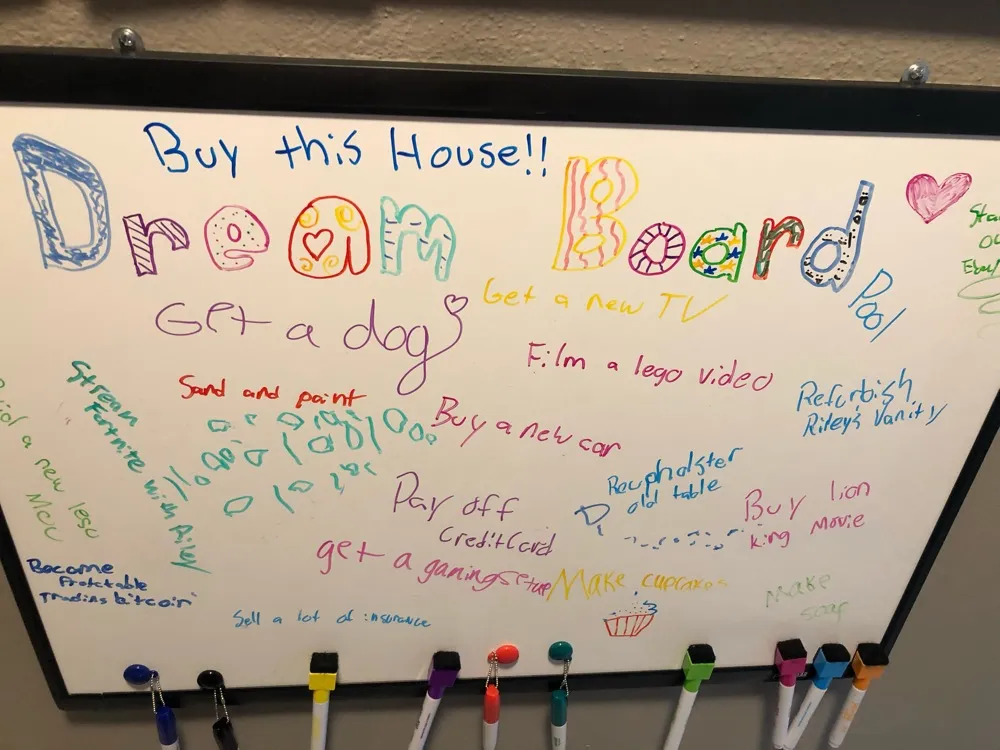 Buy this House!!
Dream Board
Get a dog
Get a new TV
Pool
Film a lego video
Sand and paint
Stream
Fortnite with Riley
Buy a new car
Refurbish
Riley's Vanity
a new lego
Pay off
CreditCard
Reupholster
old table
Buy lion
king Movie
get a gaming setup
Make cupcakes
Make
soap
Become
Protctable
Trading bitcoin
Sell a lot of insurance